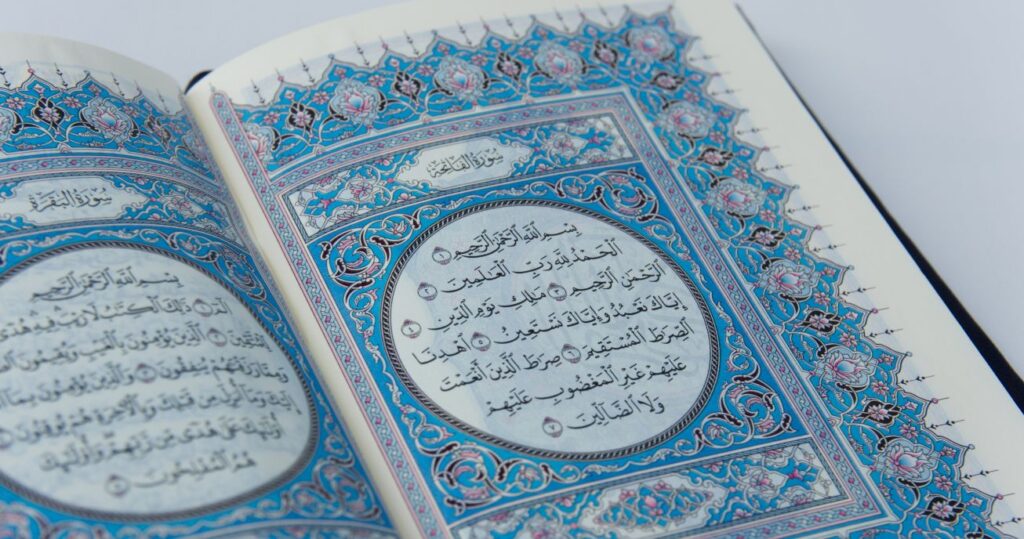 سُورَةُ الْفَاتِحَةِ
بِسْمِ ٱللَّهِ ٱلرَّحْمَٰنِ ٱلرَّحِيمِ ١
ٱلْحَمْدُ لِلَّهِ رَبِّ ٱلْعَٰلَمِينَ ٢
ٱلرَّحْمَٰنِ ٱلرَّحِيمِ ٣ مَٰلِكِ يَوْمِ ٱلدِّينِ ٤
إِيَّاكَ نَعْبُدُ وَإِيَّاكَ نَسْتَعِينُ ٥ ٱهْدِنَا
ٱلصِّرَٰطَ ٱلْمُسْتَقِيمَ ٦ صِرَٰطَ ٱلَّذِينَ أَنْعَمْتَ
عَلَيْهِمْ غَيْرِ ٱلْمَغْضُوبِ عَلَيْهِمْ
وَلَا ٱلضَّآلِّينَ ٧
سُورَةُ الْبَقَرَةِ
بِسْمِ ٱللَّهِ ٱلرَّحْمَٰنِ ٱلرَّحِيمِ
الٓمٓ ١ ذَٰلِكَ ٱلْكِتَٰبُ لَا رَيْبَ فِيهِ هُدًى
لِّلْمُتَّقِينَ ٢ ٱلَّذِينَ يُؤْمِنُونَ بِٱلْغَيْبِ وَيُقِيمُونَ
وَمِمَّا رَزَقْنَٰهُمْ يُنفِقُونَ ٣ وَٱلَّذِينَ يُؤْمِنُونَ بِمَآ
إِلَيْكَ وَمَآ أُنزِلَ مِن قَبْلِكَ وَبِٱلْءَاخِرَةِ هُمْ يُوقِنُونَ ٤
أُو۟لَٰٓئِكَ عَلَىٰ هُدًى مِّن رَّبِّهِمْ وَأُو۟لَٰٓئِكَ
هُمُ ٱلْمُفْلِحُونَ ٥